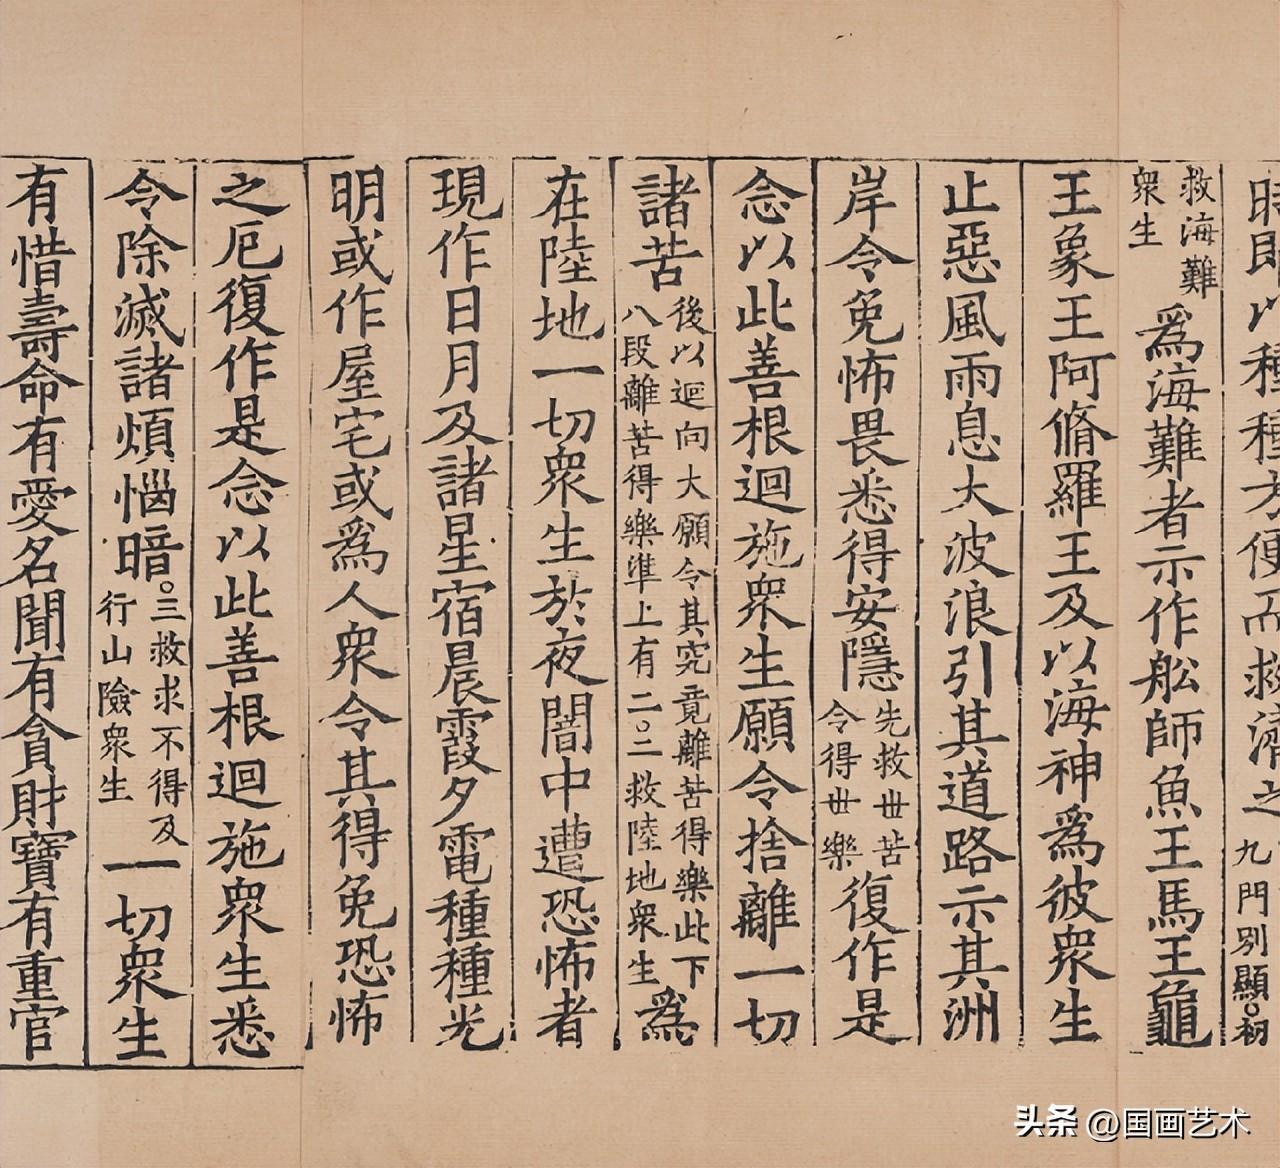 時即以種種方便而救濟之九門別顯。初
救海難
衆生
為海難者示作舩師魚王馬王龜
王象王阿脩羅王及以海神為彼衆生
止惡風雨息大波浪引其道路示其洲
岸令免怖畏悉得安隱
先救世苦
令得世樂
復作是
念以此善根迴施衆生願令捨離一切
諸苦
後以迴向大願令其究竟離苦得樂此下
八段離苦得樂準上有二。二救陸地衆生
為
在陸地一切衆生於夜闇中遭恐怖者
現作日月及諸星宿晨霞夕電種種光
明或作屋宅或為人衆令其得免恐怖
之厄復作是念以此善根迴施衆生悉
令除滅諸煩惱暗。
三救求不得及
行山險衆生
一切衆生
有惜壽命有愛名聞有貪財寶有重官
头条 @国画艺术